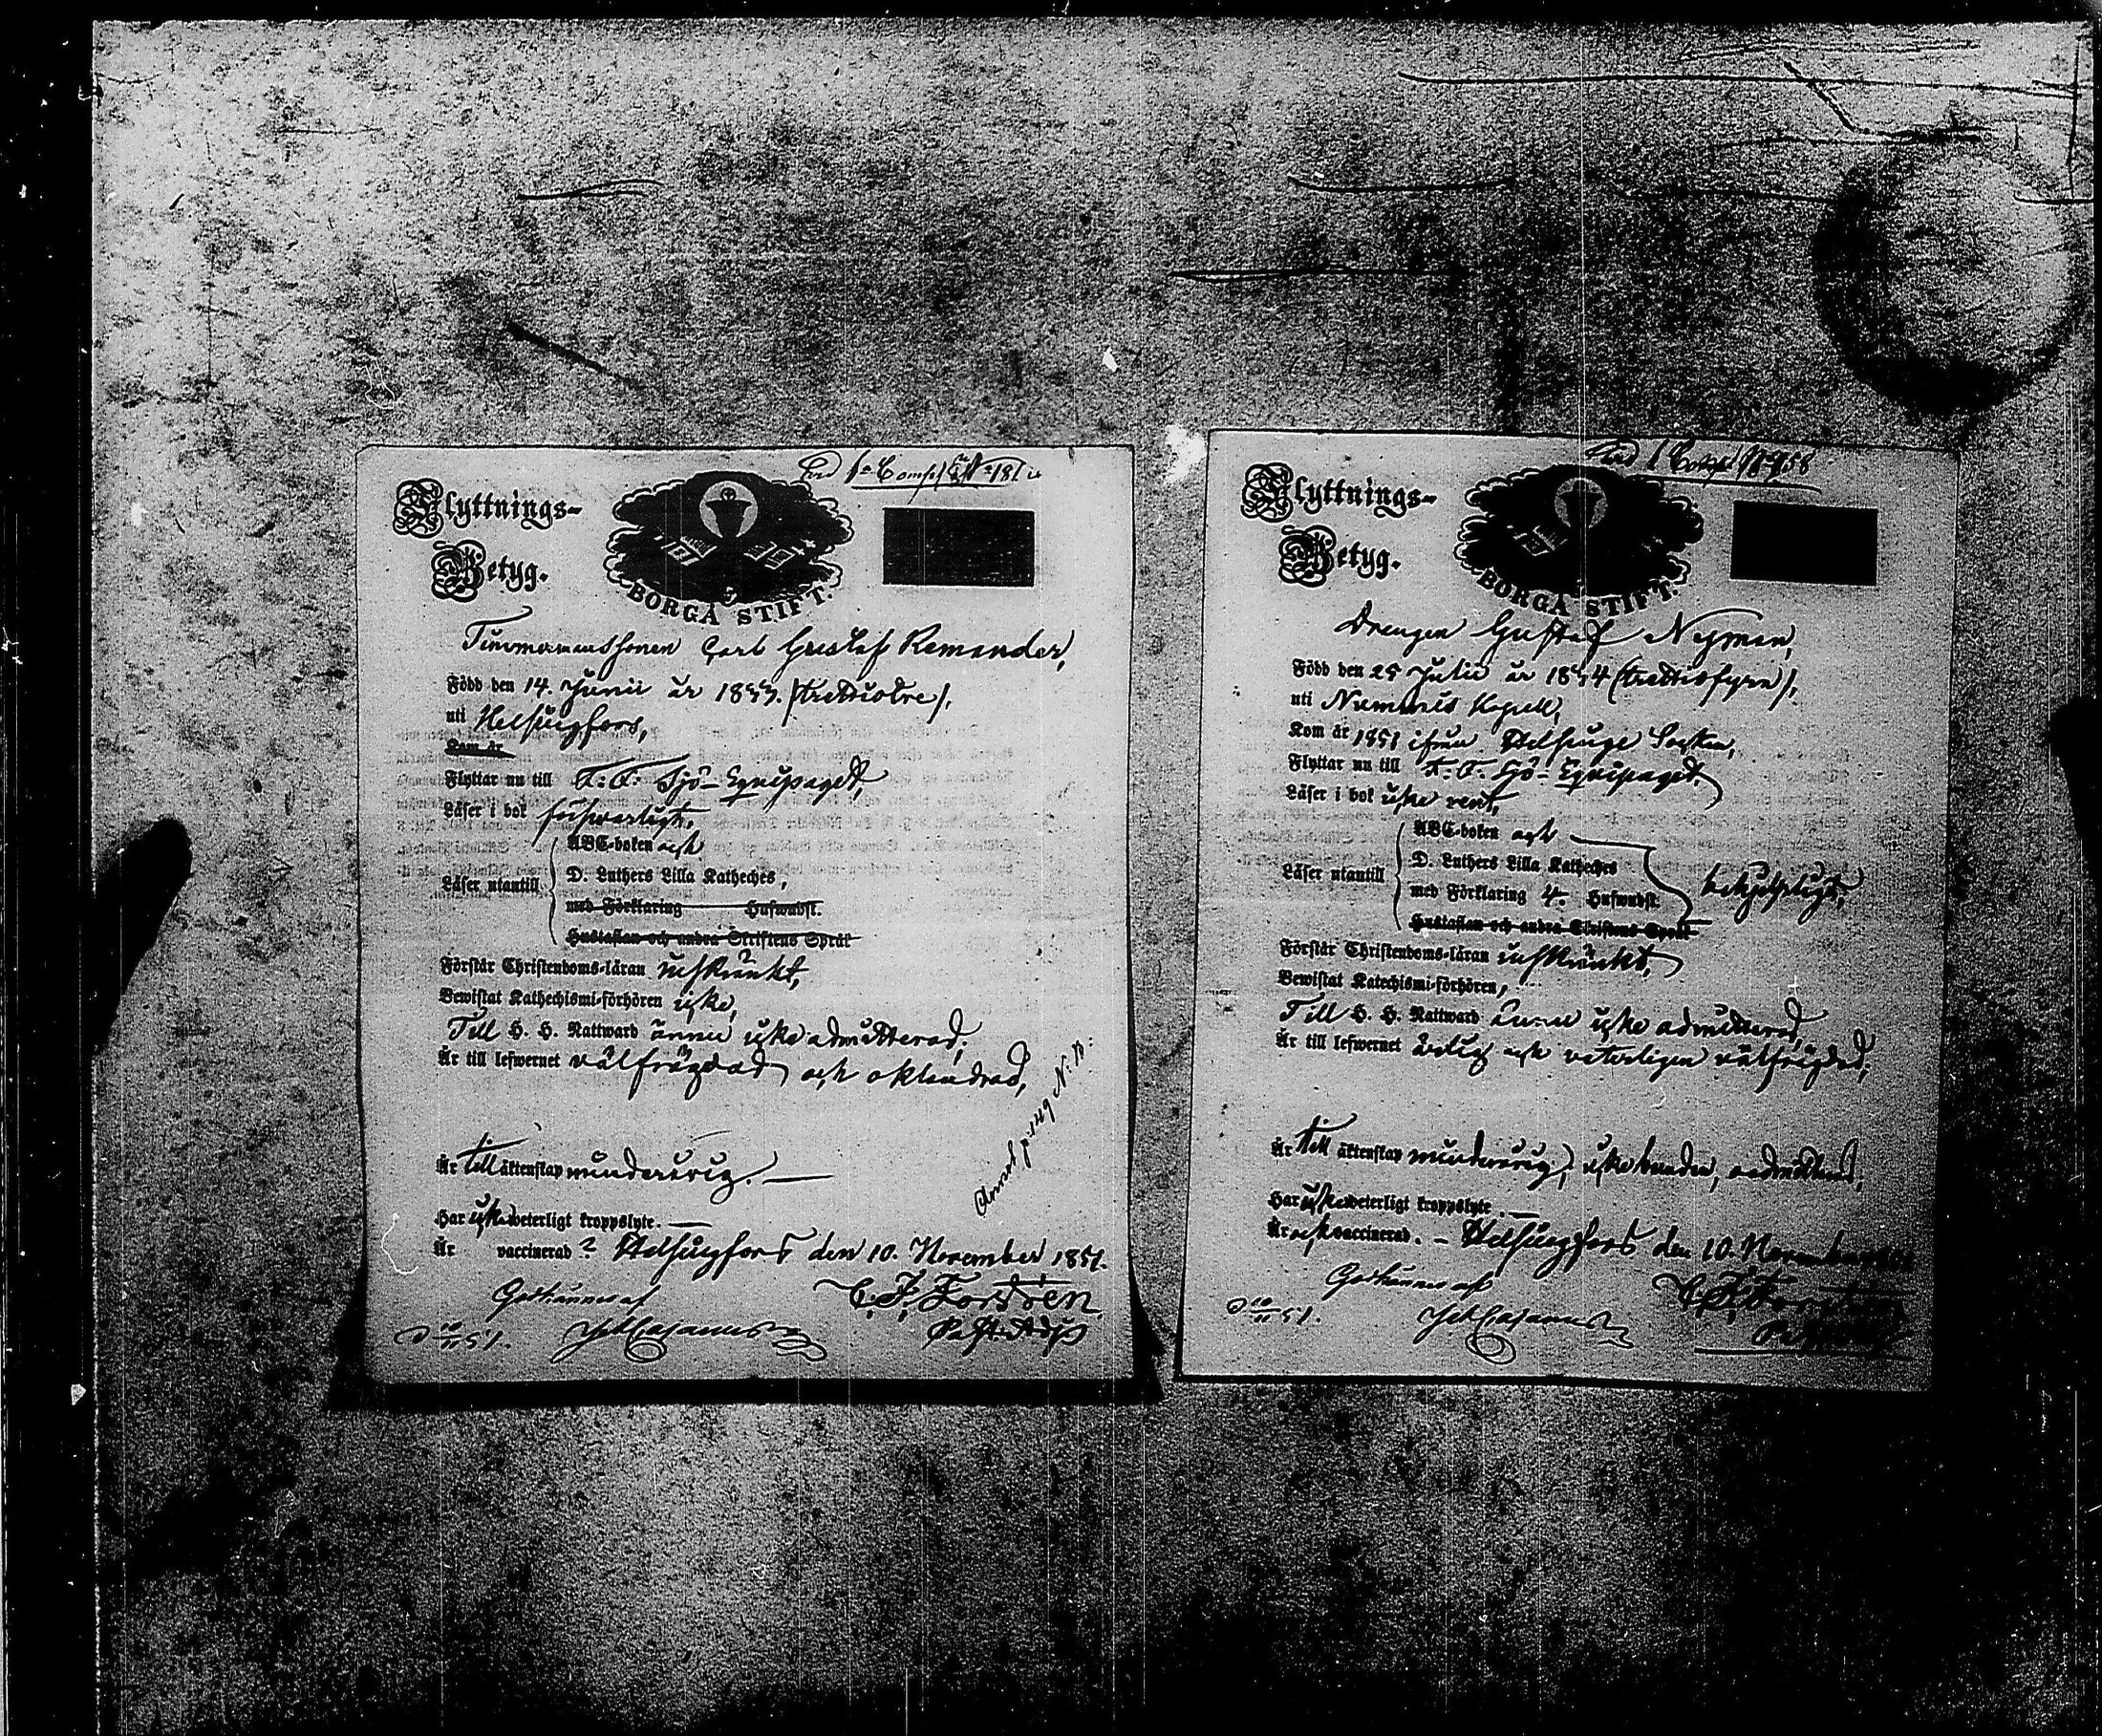 Flyttnings-
Betyg.
BORGÅ STIFT.
Timmermanssonen Carl Gustaf Remander,
Född den 14. Junii år 1833. (trettiotre).
uti Helsingfors,
Kom år
Flyttar nu till F: F: Sjö-Equipaget,
Läser i bok försvarligt.
Läser utantill
ABC-boken och
D. Luthers Lilla Katheches,
med Förklaring Huswudst.
Hustaflan och andra Skriftens Språk
Förstår Christendoms-läran inskränkt,
Bewistat Kathechismi-förhören icke,
Till H. H. Nattward ännu icke admitterad,
Är till lefwernet välfrägdad och oklandrad,
Är till äktenskap minderårig.
Har icke weterligt kroppslyte.
Är vaccinerad? Helsingfors den 10. November 1851.
Godkännes af
C. J. Forstén
Past. Adj.
Flyttnings-
Betyg.
BORGÅ STIFT.
Drengen Gustaf Nyman,
Född den 25 Julii år 1834 (trettiofyra),
uti Nummis Kapell,
Kom år 1851 ifrån Helsinge Socken,
Flyttar nu till F. F. Sjö-Equipaget,
Läser i bok icke rent,
Läser utantill
ABC-boken och
D. Luthers Lilla Katheches
med Förklaring 4. Huswudst.
Hustaflan och andra Skriftens Språk
behjelpligt,
Förstår Christendoms-läran inskränkt,
Bewistat Katechismi-förhören,
Till H. H. Nattward ännu icke admitterad,
Är till lefwernet ärlig och veterligen välfrägdad,
Är till äktenskap minderårig, icke bunden, oadmitterad,
Har icke weterligt kroppslyte.
Är och vaccinerad. - Helsingfors den 10. November
Godkännes af